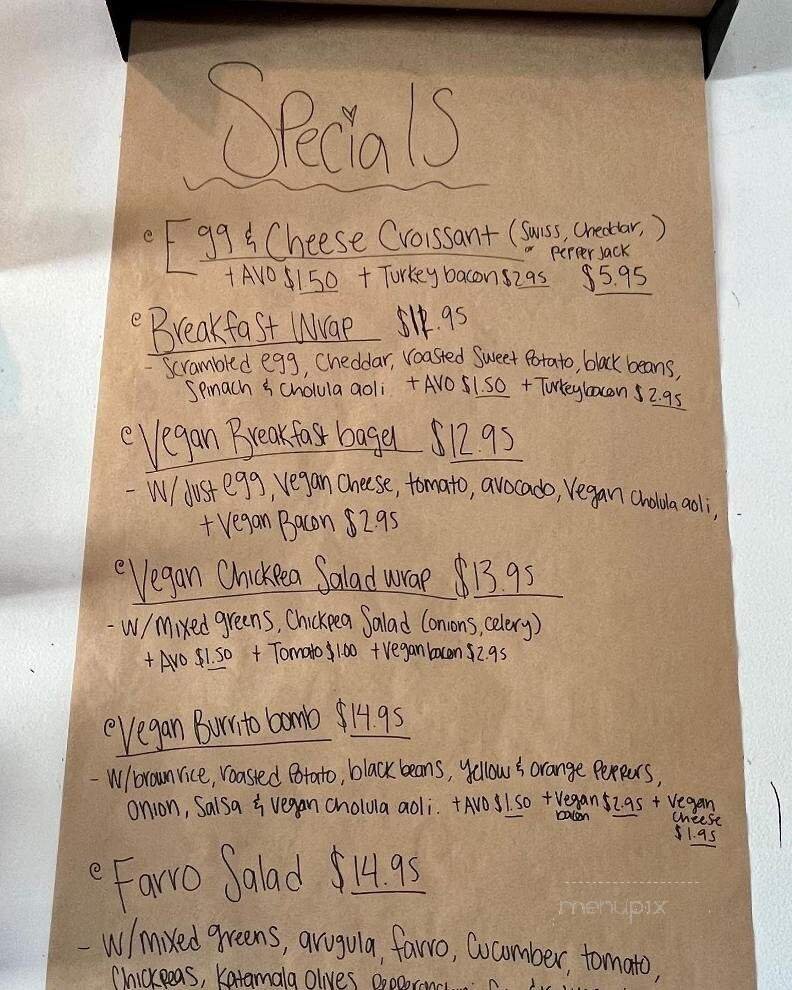 Specials
Egg & Cheese Croissant (Swiss, Cheddar, )
or Pepper Jack
+ AVO $1.50 + Turkey bacon $2.95 $5.95
Breakfast Wrap .95
- Scrambled egg, Cheddar, roasted Sweet Potato, black beans,
Spinach & Cholula aoli + AVO $1.50 + Turkey bacon $2.95
Vegan Breakfast bagel $12.95
- W/ Just egg, Vegan Cheese, tomato, avocado, Vegan Cholula aoli,
+ Vegan Bacon $2.95
Vegan Chickpea Salad wrap $13.95
- W/ Mixed greens, Chickpea Salad (onions, celery)
+ AVO $1.50 + Tomato $1.00 + Vegan bacon $2.95
Vegan Burrito bomb $14.95
- W/ brown rice, roasted Potato, black beans, Yellow & orange Peppers,
Onion, Salsa & Vegan Cholula aoli. + AVO $1.50 + Vegan $2.95 + Vegan
bacon Cheese
$1.95
Farro Salad $14.95
menupix
- W/ Mixed greens, arugula, farro, Cucumber, tomato,
Chickpeas, Katamala Olives